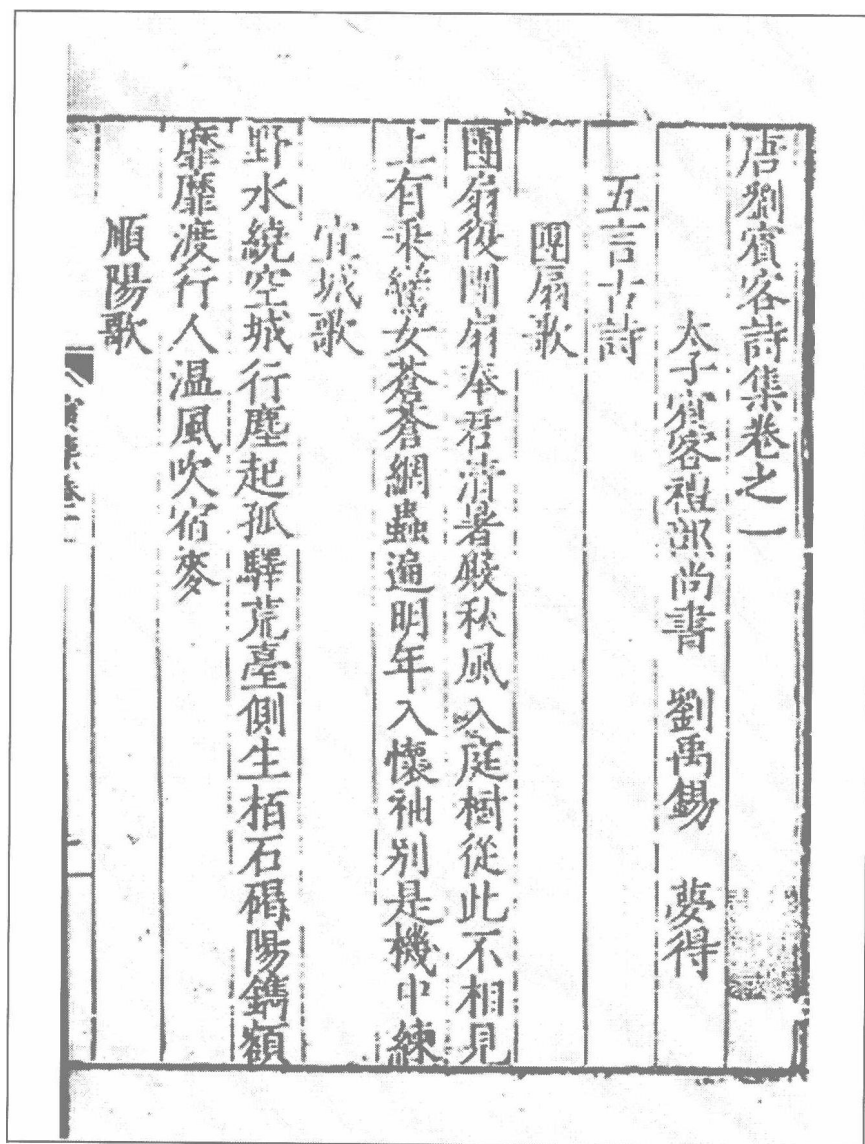 唐劉賓客詩集卷之一
太子賓客禮部尚書 劉禹錫 夢得
五言古詩
團扇歌
團扇復團扇奉君清暑殿秋風入庭樹從此不相見
上有乘鸞女蒼蒼網蟲遍明年入懷袖別是機中練
宜城歌
野水繞空城行塵起孤驛荒臺側生栢石碣陽鐫額
靡靡渡行人温風吹宿麥
順陽歌